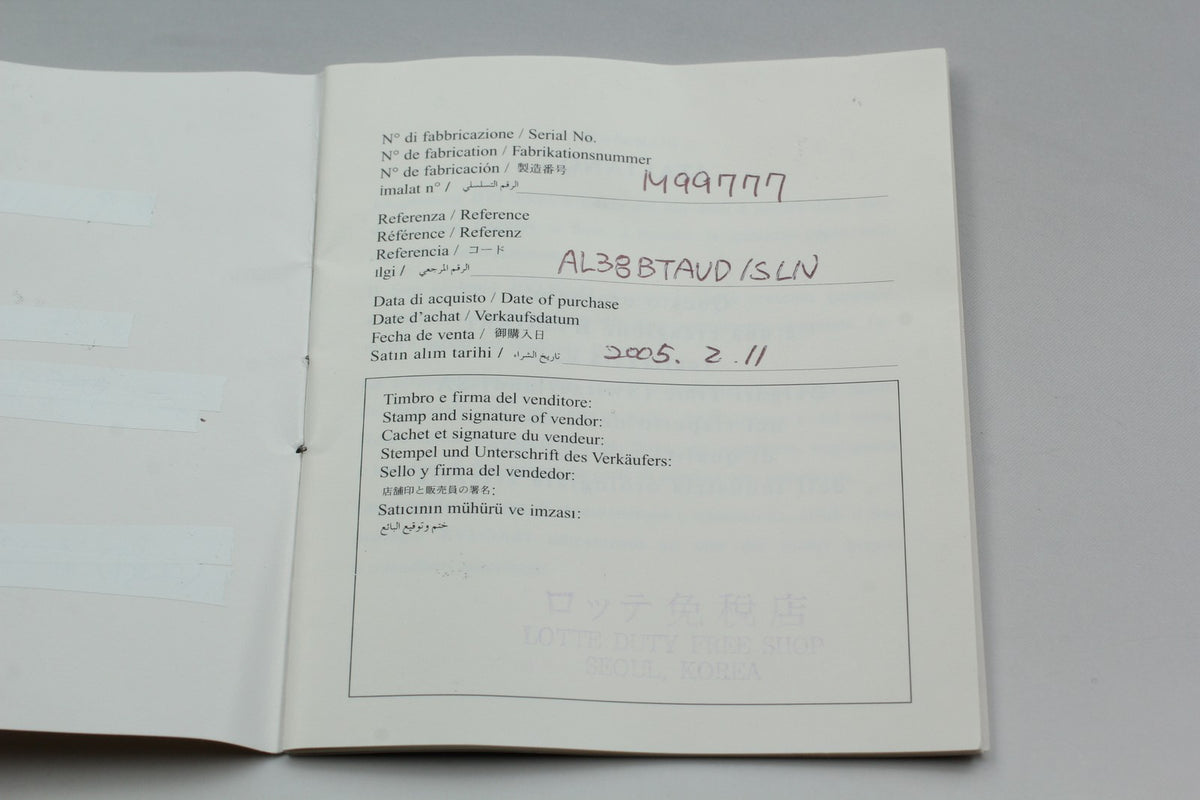 N° di fabbricazione / Serial No.
N° de fabrication / Fabrikationsnummer
N° de fabricación / 製造番号
imalat n° / الرقم التسلسلي
M99777
Referenza / Reference
Référence / Referenz
Referencia / コード
ılgi / الرقم المرجعي
AL38BTAUD/SLN
Data di acquisto / Date of purchase
Date d'achat / Verkaufsdatum
Fecha de venta / 御購入日
Satın alım tarihi / تاريخ الشراء
2005. 2. 11
Timbro e firma del venditore:
Stamp and signature of vendor:
Cachet et signature du vendeur:
Stempel und Unterschrift des Verkäufers:
Sello y firma del vendedor:
店舗印と販売員の署名:
Satıcının mühürü ve imzası:
ختم وتوقيع البائع
ロッテ免税店
LOTTE DUTY FREE SHOP
SEOUL, KOREA